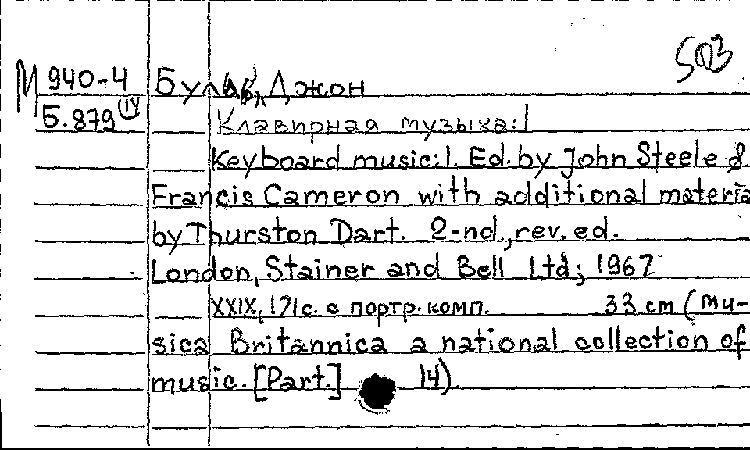 503
М 940-4 Булл, Джон
Б.879 (IV)
Клавирная музыка:1
Keyboard music:1. Ed. by John Steele &
Francis Cameron with additional materia
by Thurston Dart. 2-nd., rev. ed.
London, Stainer and Bell Ltd; 1967
XXIX, 171 с. с портр. комп. 33 cm (Mu-
sica Britannica a national collection of
music. [Part.] 14)